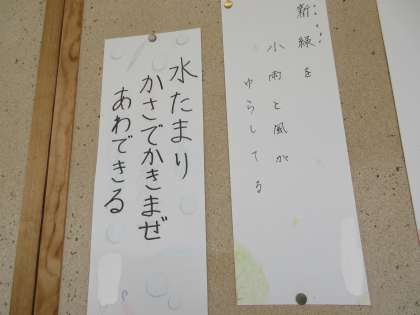 新緑を
小雨と風が
ゆらしてる
水たまり
かさでかきまぜ
あわできる